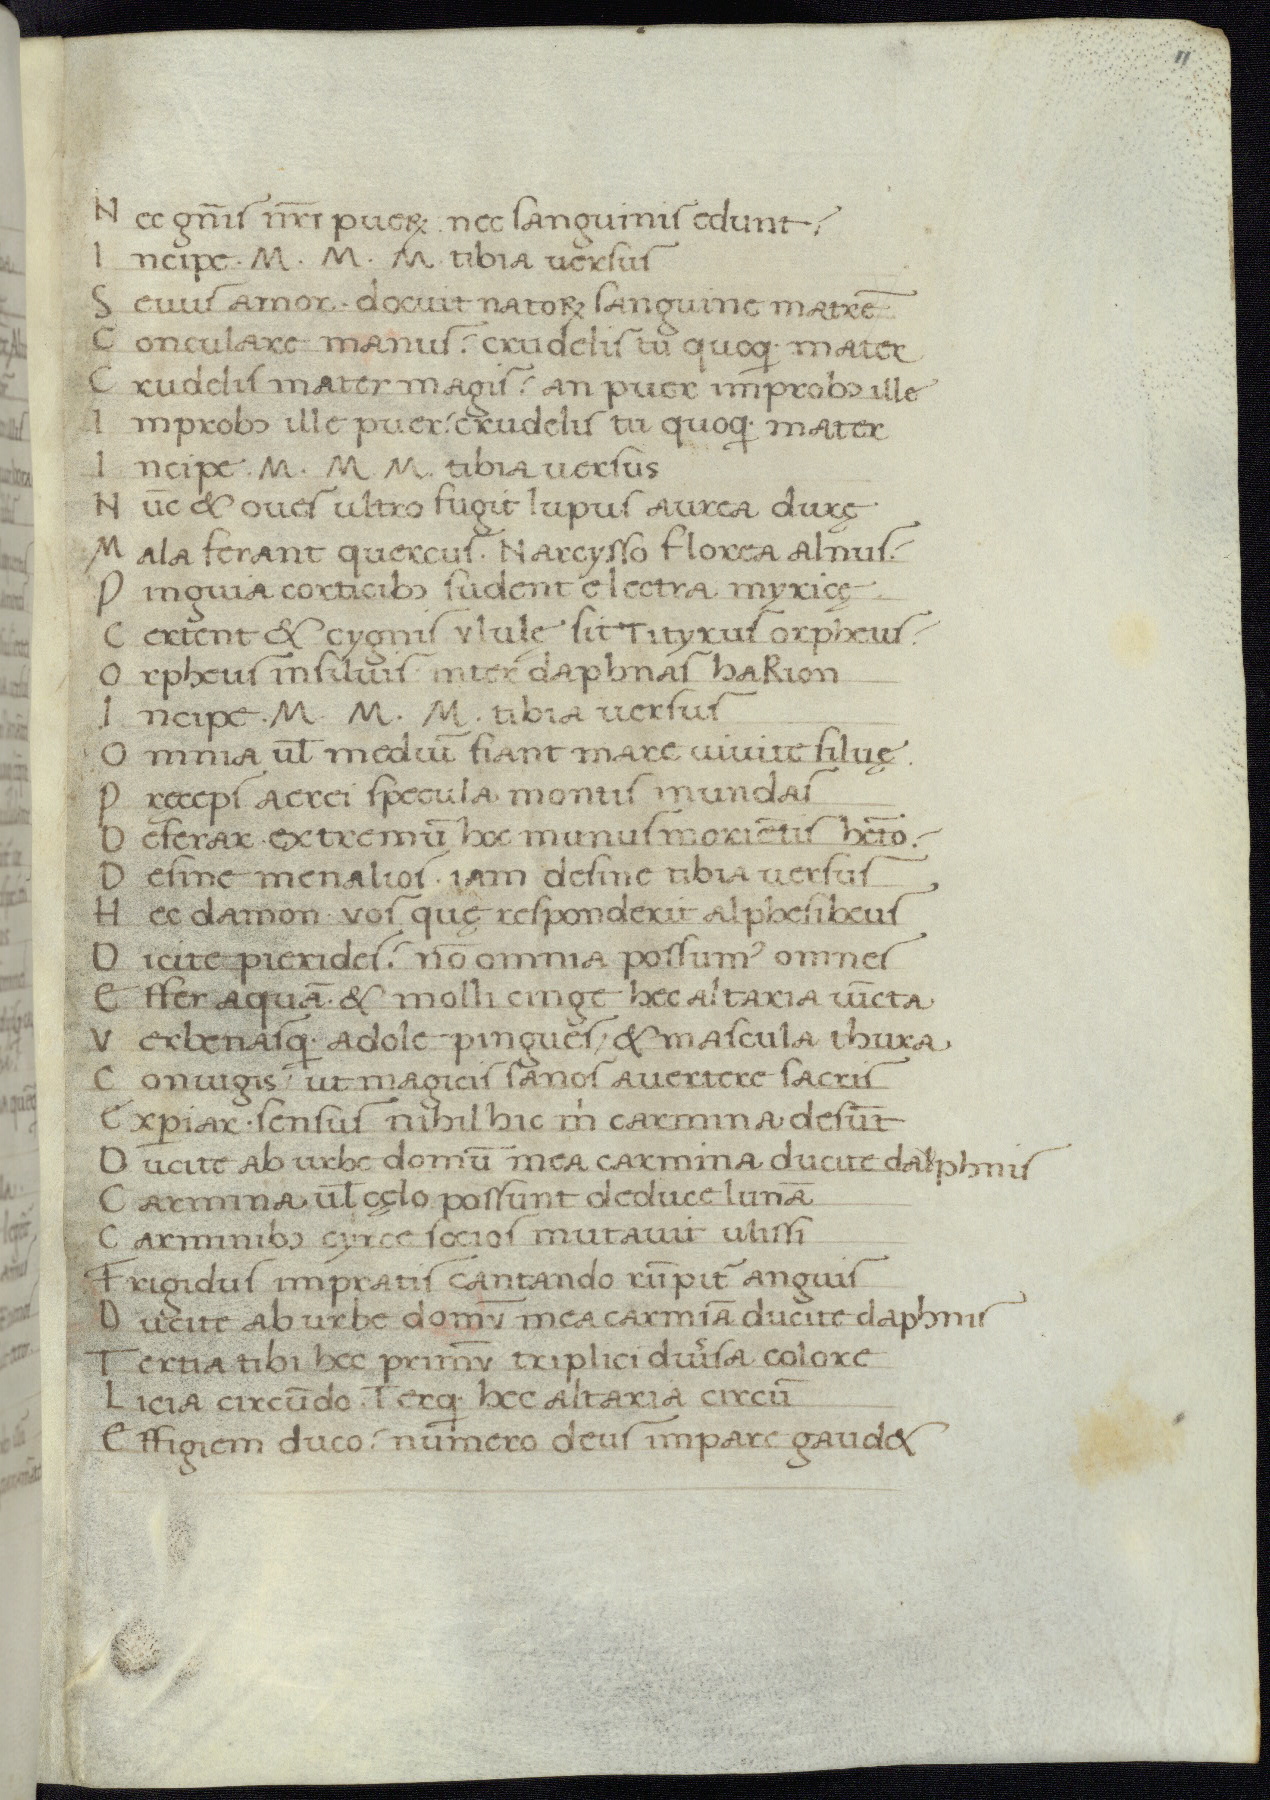 11
Nec gn̄is nr̄i puerꝝ. nec sanguinis edunt.
Incipe. M. M. M. tibia uersus
Seuus amor. docuit natorꝝ sanguine matrē
Conculare manus. crudelis tu quoq; mater
Crudelis mater magis. an puer īmprobꝫ ille
Improbꝫ ille puer. crudelis tu quoq; mater
Incipe. M. M. M. tibia uersus
Nūc & oues ultro fugit lupus aurea durę
Mala ferant quercus. Narcysso florea alnus.
Pinguia corticibꝫ sudent electra myricę.
Certent & cygnis vlulę sit Tityrus orpheus.
Orpheus insiluis inter daphnas haRion
Incipe. M. M. M. tibia uersus
Omnia ul̄ mediū fiant mare uiuite siluę.
Preceps aerei specula montis inundas
Deferar. extremū hec munus moriētis hēto.
Desine menalios. iam desine tibia uersus
Hec damon. vos quę responderit alphesibeus
Dicite pierides. nō omnia possum⁹ omnes
Effer aquā. & molli cinge hec altaria uīcta
Verbenasq; adole pingues, & mascula thura
Coniugis, ut magicis sanos auertere sacris
Expiar. sensus nihil hic ṁ carmina desūt
Ducite ab urbe domū mea carmina ducite dalphnis
Carmina ul̄ cęlo possunt deduce lunā
Carminibꝫ cyrce socios mutauit ulissi
Frigidus impratis cantando rūpit᷑ anguis
Ducite ab urbe domv̄ mea carmīa ducite daphnis
Tertia tibi hec primv̄ triplici duīsa colore
Licia circūdo. Terq; hec altaria circū
Effigiem duco. nūmero deus impare gaud&